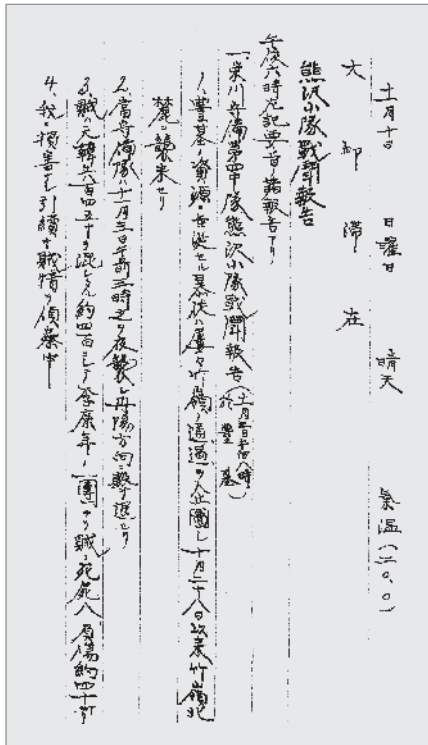 十一月十日　日曜日　晴天　氣温(二〇、〇)
大邱滞在
熊沢小隊戰鬪報告
午後六時左記要旨ノ諸報告アリ
一、栄川守備第四中隊熊沢小隊戰鬪報告(十一月三日午前八時於豊基)
1、豊基ノ資源ニ垂涎セル暴徒ハ屢々竹嶺ノ通過ヲ企圖シ十月二十八日以来竹嶺北
麓ニ襲来セリ
2、當守備隊ハ十一月三日午前三時之ヲ夜襲シ丹陽方向ニ撃退セリ
3、賊ハ元韓兵百四五十ヲ混シタル約四百ニシテ李康年ノ一團ナリ賊ノ死屍八負傷約四十
4、我ニ損害ナシ引續キ賊情ヲ偵察中